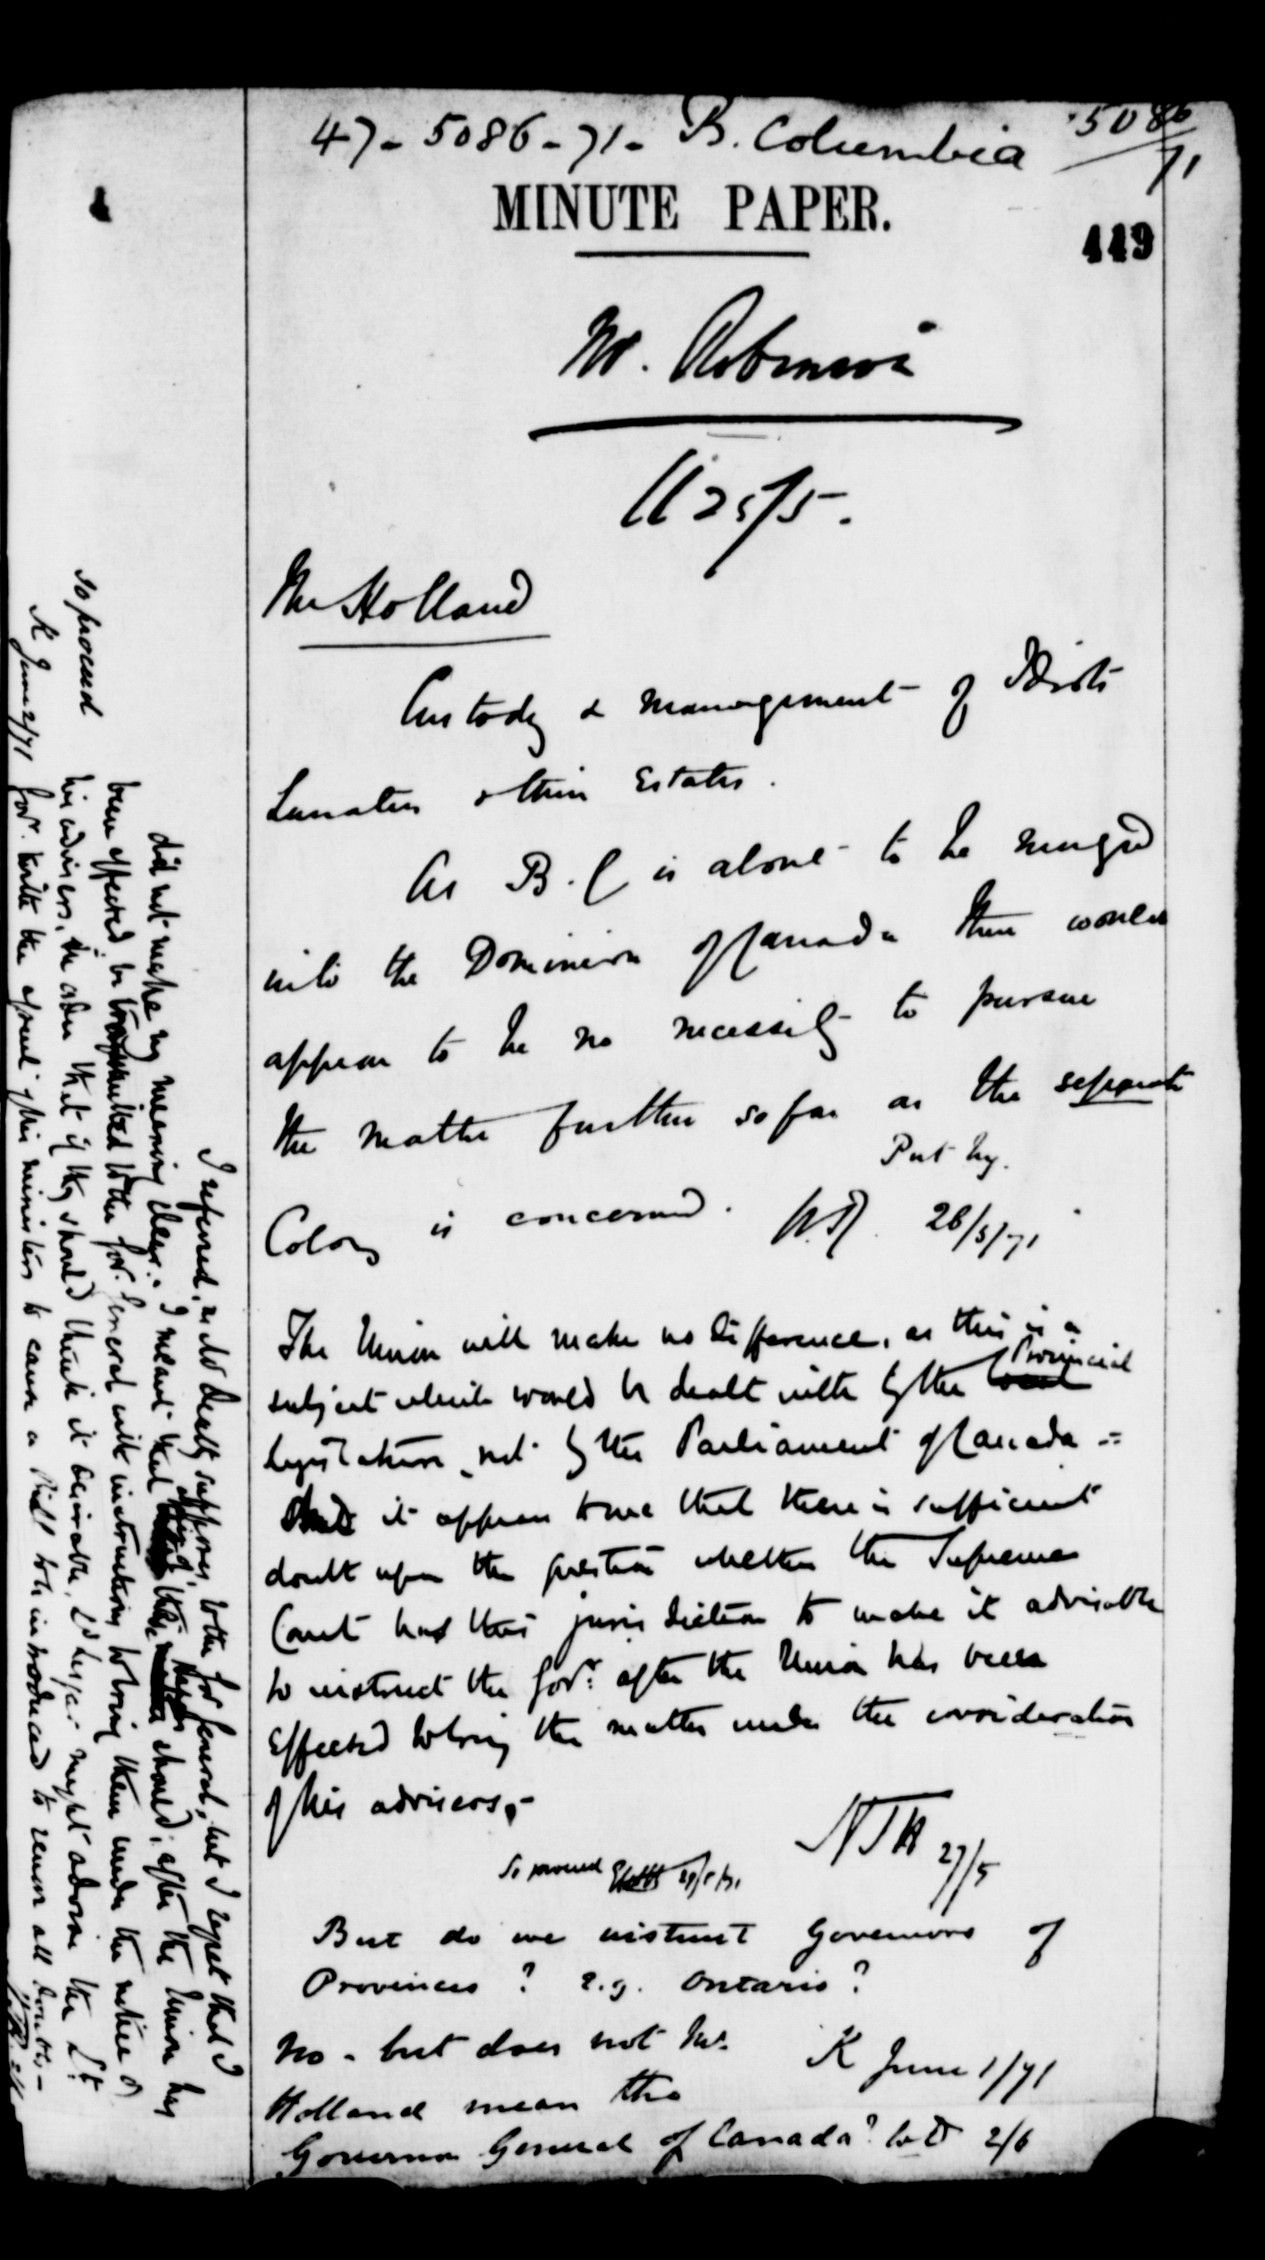 47 - 5086 - 71 - B. Columbia
5086/71
MINUTE PAPER.
449
Mr. Robinson
25/5.
Mr Holland
Custody & management of Idiots
Lunatics & their Estates.
As B.C is about to be merged
into the Dominion of Canada there would
appear to be no necessity to pursue
the matter further so far as the separate
Colony is concerned.
Put by.
WR 26/5/71
The Union will make no difference, as this is a
subject which would be dealt with by the local Provincial
legislature, not by the Parliament of Canada -
it appears to me that there is sufficient
doubt upon the question whether the Supreme
Court has this jurisdiction to make it advisable
to instruct the Govr. after the Union has been
effected to bring the matter under the consideration
of his advisers.-
HTH 27/5
So proceed
But do we instruct Governors of
Provinces? e.g. Ontario?
K June 1/71
No - but does not Mr.
Holland mean the
Governor General of Canada? 2/6
I referred, as Sir F. Rogers supposes, to the Govr General, but I regret that I
did not make my meaning clear. I meant that should, after the Union has
been effected, be transmitted to the Govr. General with instructions to bring them under the notice of
his advisers, in order that if they should think it desirable, Ld Lisgar might advise the Lt
Govr. with the assent of his ministers to cause a Bill to be introduced to remove all doubts -
So proceed
K June 2/71